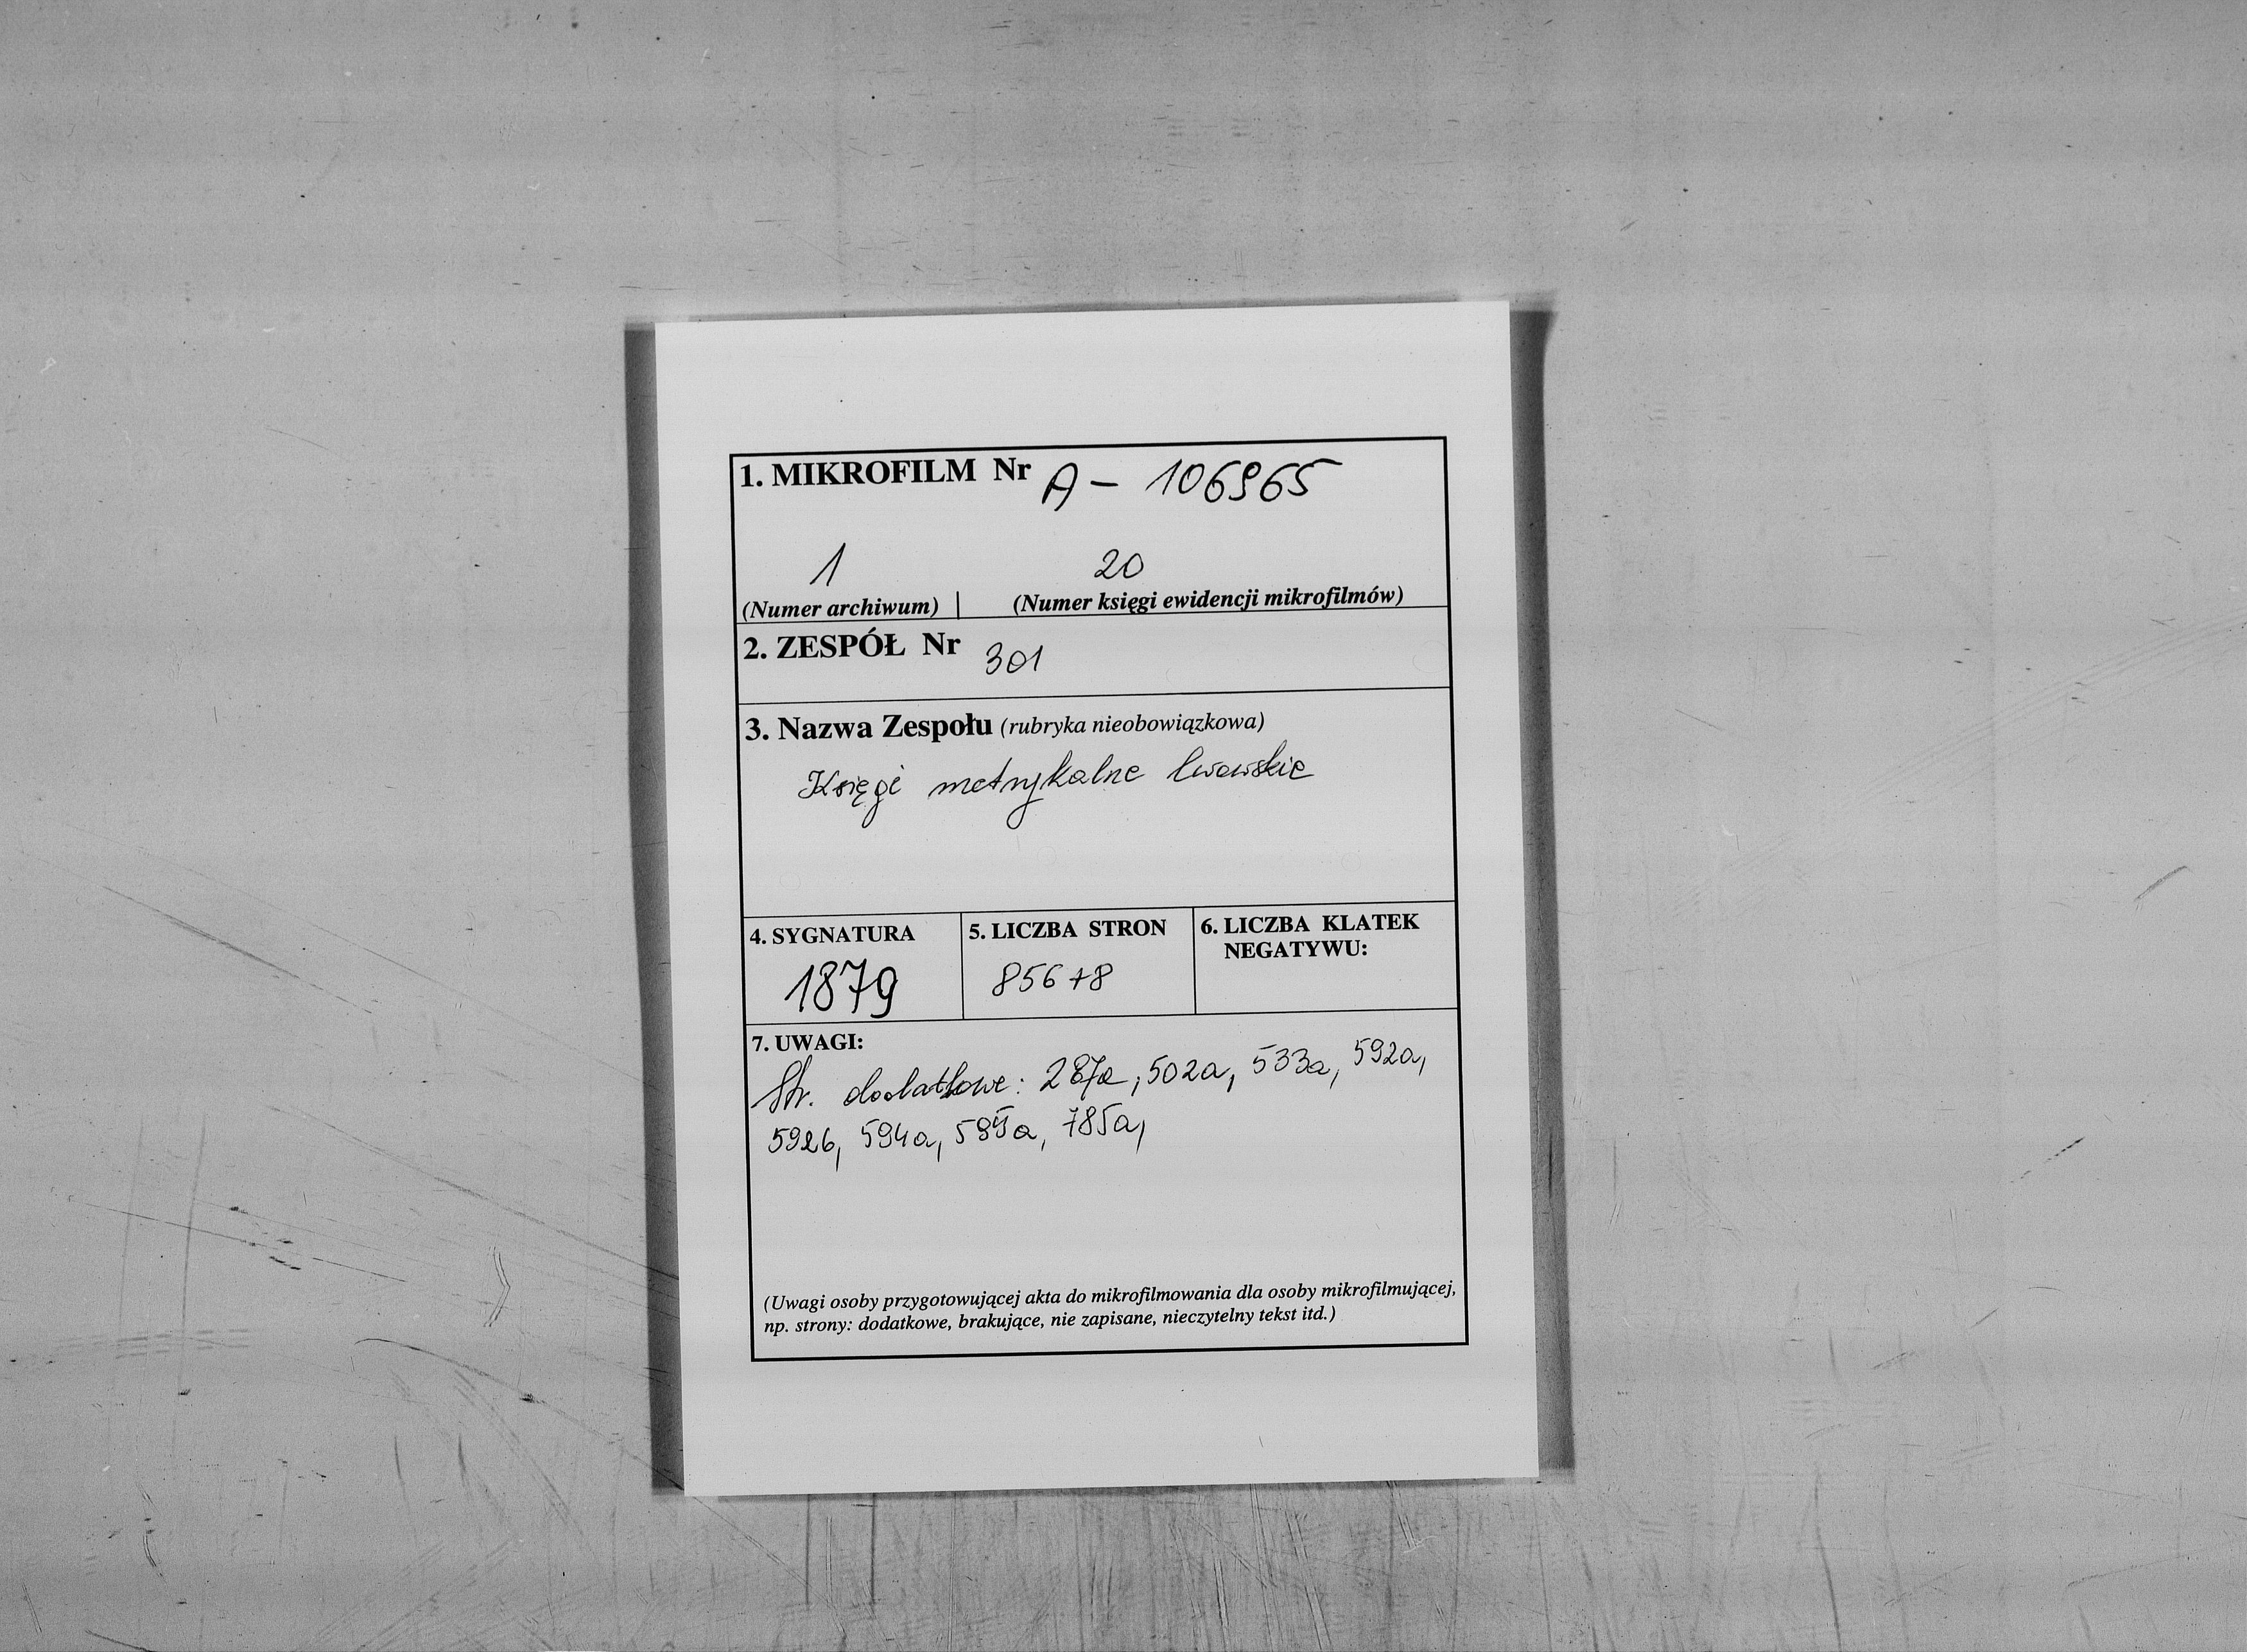 1. MIKROFILM Nr A - 106965
1 20
(Numer archiwum) | (Numer księgi ewidencji mikrofilmów)
2. ZESPÓŁ Nr 301
3. Nazwa Zespołu (rubryka nieobowiązkowa)
Księgi metrykalne lwowskie
4. SYGNATURA 5. LICZBA STRON 6. LICZBA KLATEK
NEGATYWU:
1879 856+8
7. UWAGI:
Str. dodatkowe: 287a, 502a, 533a, 592a,
592b, 594a, 595a, 785a,
(Uwagi osoby przygotowującej akta do mikrofilmowania dla osoby mikrofilmującej,
np. strony: dodatkowe, brakujące, nie zapisane, nieczytelny tekst itd.)